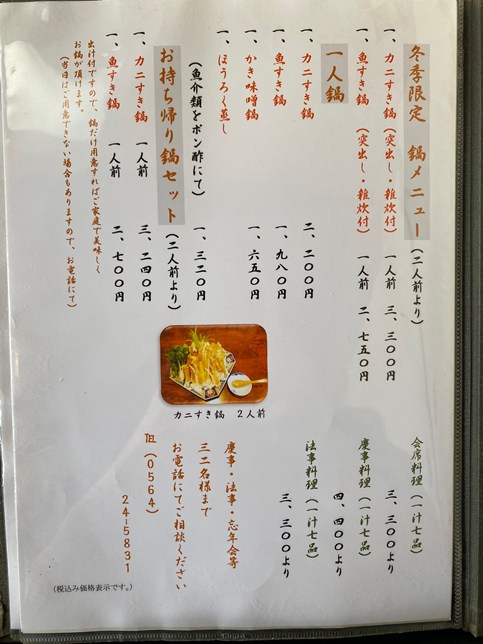 冬季限定 鍋メニュー(二人前より)
一、カニすき鍋(突出し・雑炊付) 一人前 三、三〇〇円
一、魚すき鍋(突出し・雑炊付) 一人前 二、七五〇円
一人鍋
一、カニすき鍋 二、二〇〇円
一、魚すき鍋 一、九八〇円
一、かき味噌鍋 一、六五〇円
一、ほうろく蒸し 一、三二〇円
(魚介類をポン酢にて)
お持ち帰り鍋セット(二人前より)
一、カニすき鍋 一人前 三、二四〇円
一、魚すき鍋 一人前 二、七〇〇円
出汁付ですので、鍋だけ用意すればご家庭で美味しく
お鍋が頂けます。
(当日はご用意できない場合もありますので、お電話にて)
カニすき鍋 2人前
会席料理(一汁七品) 三、三〇〇より
慶事料理(一汁七品) 四、四〇〇より
法事料理(一汁七品) 三、三〇〇より
慶事・法事・忘年会等
三二名様まで
お電話にてご相談ください
℡(0564)
24-5831
(税込み価格表示です。)